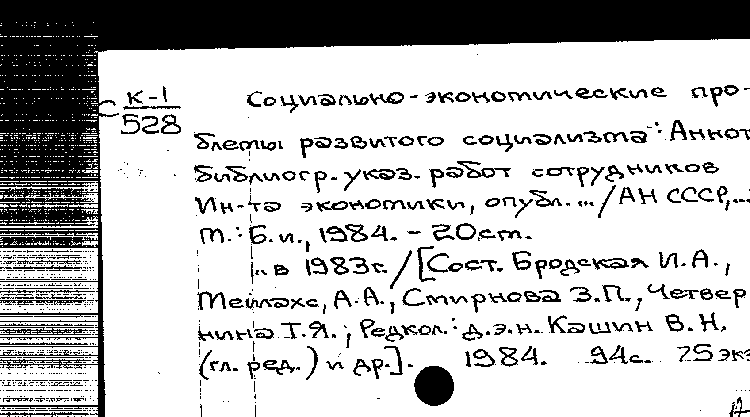 К-1
528
Социально-экономические про-
блемы развитого социализма: Аннот
библиогр. указ. работ сотрудников
Ин-та экономики, опубл. ... / АН СССР, ...
М.: Б. и., 1984. - 20см.
... в 1983г. / [Сост. Бродская И.А.,
А.А., Смирнова З.П., Четвер
нина Т.Я.; Редкол.: д.э.н. Кашин В.Н.
(гл. ред.) и др.]. 1984. 94с. 75экз